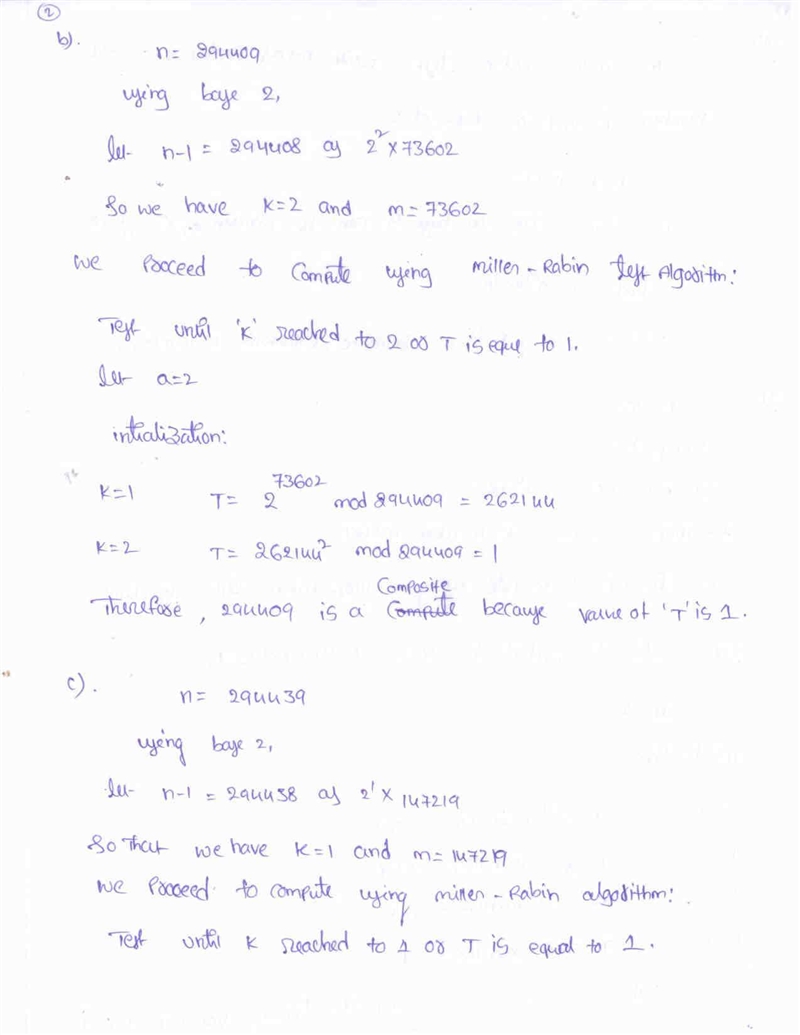 2
b).
n = 294409
using base 2,
let n-1 = 294408 as 2² × 73602
So we have K=2 and m= 73602
We Proceed to Compute using miller-Rabin test Algorithm:
Test until 'K' reached to 2 or T is eque to 1.
let a=2
intialization:
K=1 T= 2^73602 mod 294409 = 262144
K=2 T= 262144² mod 294409 = 1
Composite
Therefore, 294409 is a Compute because value of 'T' is 1.
c). n= 294439
using base 2,
let n-1 = 294438 as 2¹ × 147219
So That we have K=1 and m= 147219
We Proceed to compute using miller-Rabin algorithm:
Test until K reached to 1 or T is equal to 1.